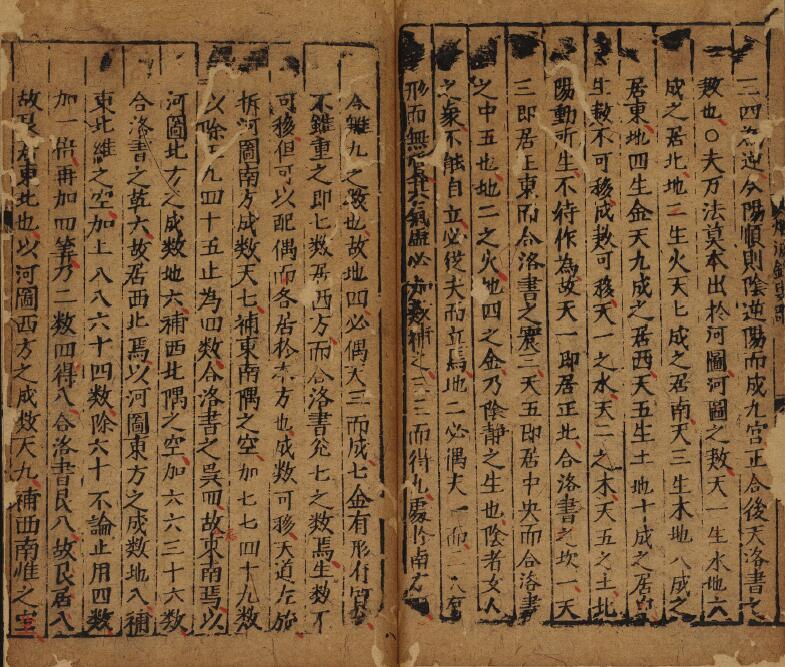 三四為逆分陽順則陰逆陽而成九宮正合後天洛書之
数也○夫万法莫本出於河圖河圖之数天一生水地六
成之居北地二生火天七成之居南天三生木地八成之
居東地四生金天九成之居西天五生土地十成之居
生数不可移成数可移天一之水天三之木天五之土北
陽動所生不待作為故天一即居正北合洛書之坎一天
三即居正東而合洛書之震三天五即居中央而合洛書
之中五也地二之火地四之金乃陰静之生也陰者女人
之象不能自立必從夫而立焉地二必偶天一而三火有
形而無氣虛必方数補之三三而得九處於南方
今雖九之数也故地四必偶天三而成七金有形有質
不雖重之即七数居西方而合洛書兊七之数焉生数不
可移但可以配偶而各居於本方也成数可移天道左旋
拆河圖南方成数天七補東南隅之空加七七四十九数
以除五九四十五止為四数合洛書之巽四故東南焉以
河圖北方之成数地六補西北隅之空加六六三十六数
合洛書之乾六故居西北焉以河圖東方之成数地八補
東北維之空加上八八六十四数除六十不論止用四数
加一倍再加四筭乃二数四得八合洛書艮八故艮居八
故艮居東北也以河圖西方之成数天九補西南惟之空